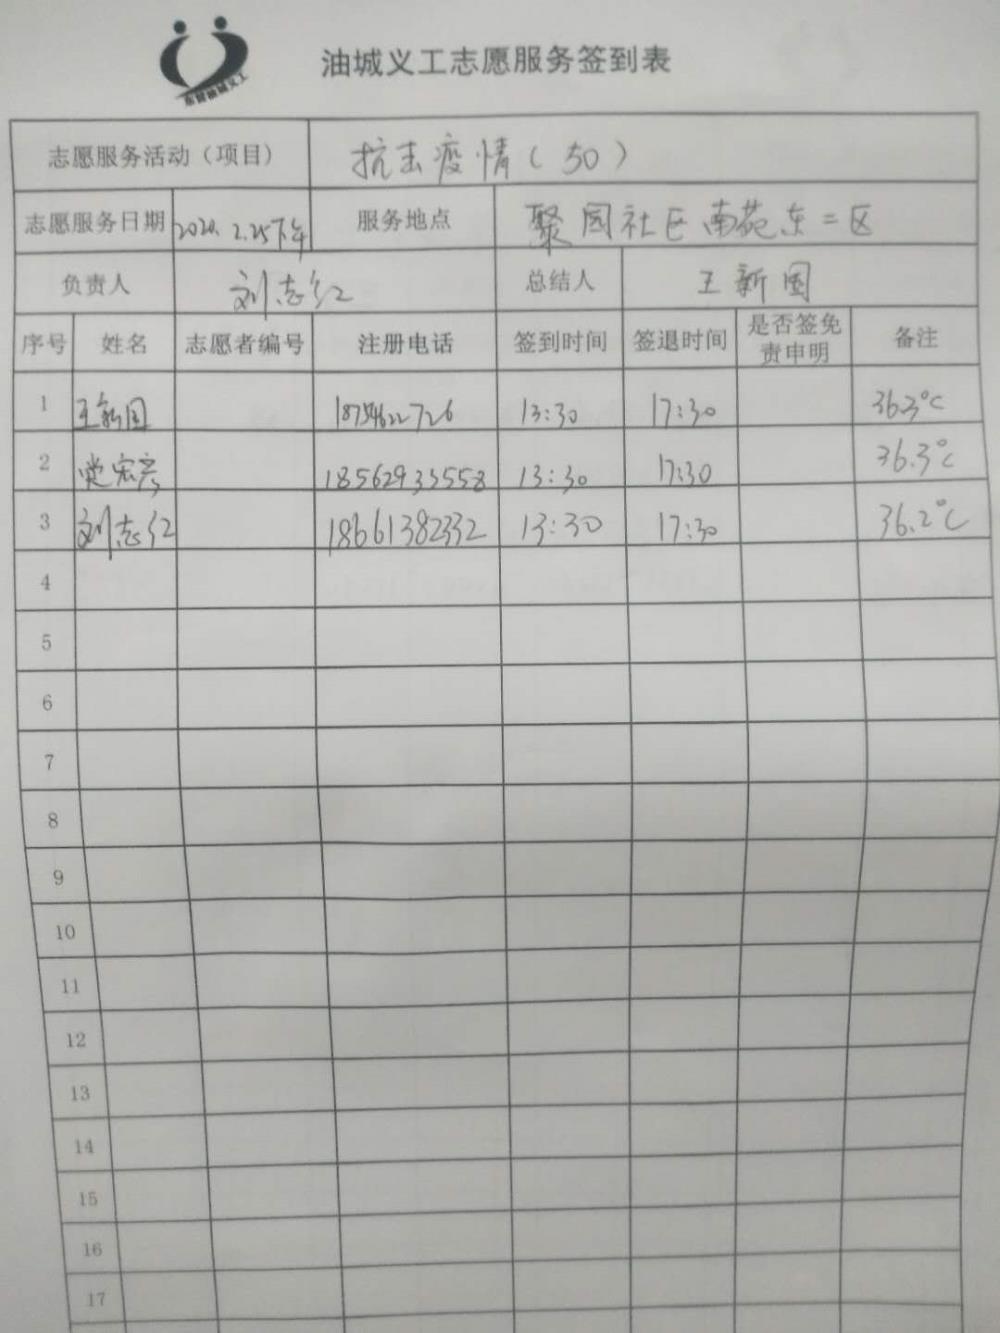 东营油城义工
油城义工志愿服务签到表
志愿服务活动（项目） 抗击疫情（50）
志愿服务日期 2020.2.25下午 服务地点 聚园社区南苑东二区
负责人 刘志红 总结人 王新国
序号 姓名 志愿者编号 注册电话 签到时间 签退时间 是否签免责申明 备注
1 王新国 18754622726 13:30 17:30 36.3℃
2 宏 18562933558 13:30 17:30 36.3℃
3 刘志红 18661382332 13:30 17:30 36.2℃
4
5
6
7
8
9
10
11
12
13
14
15
16
17